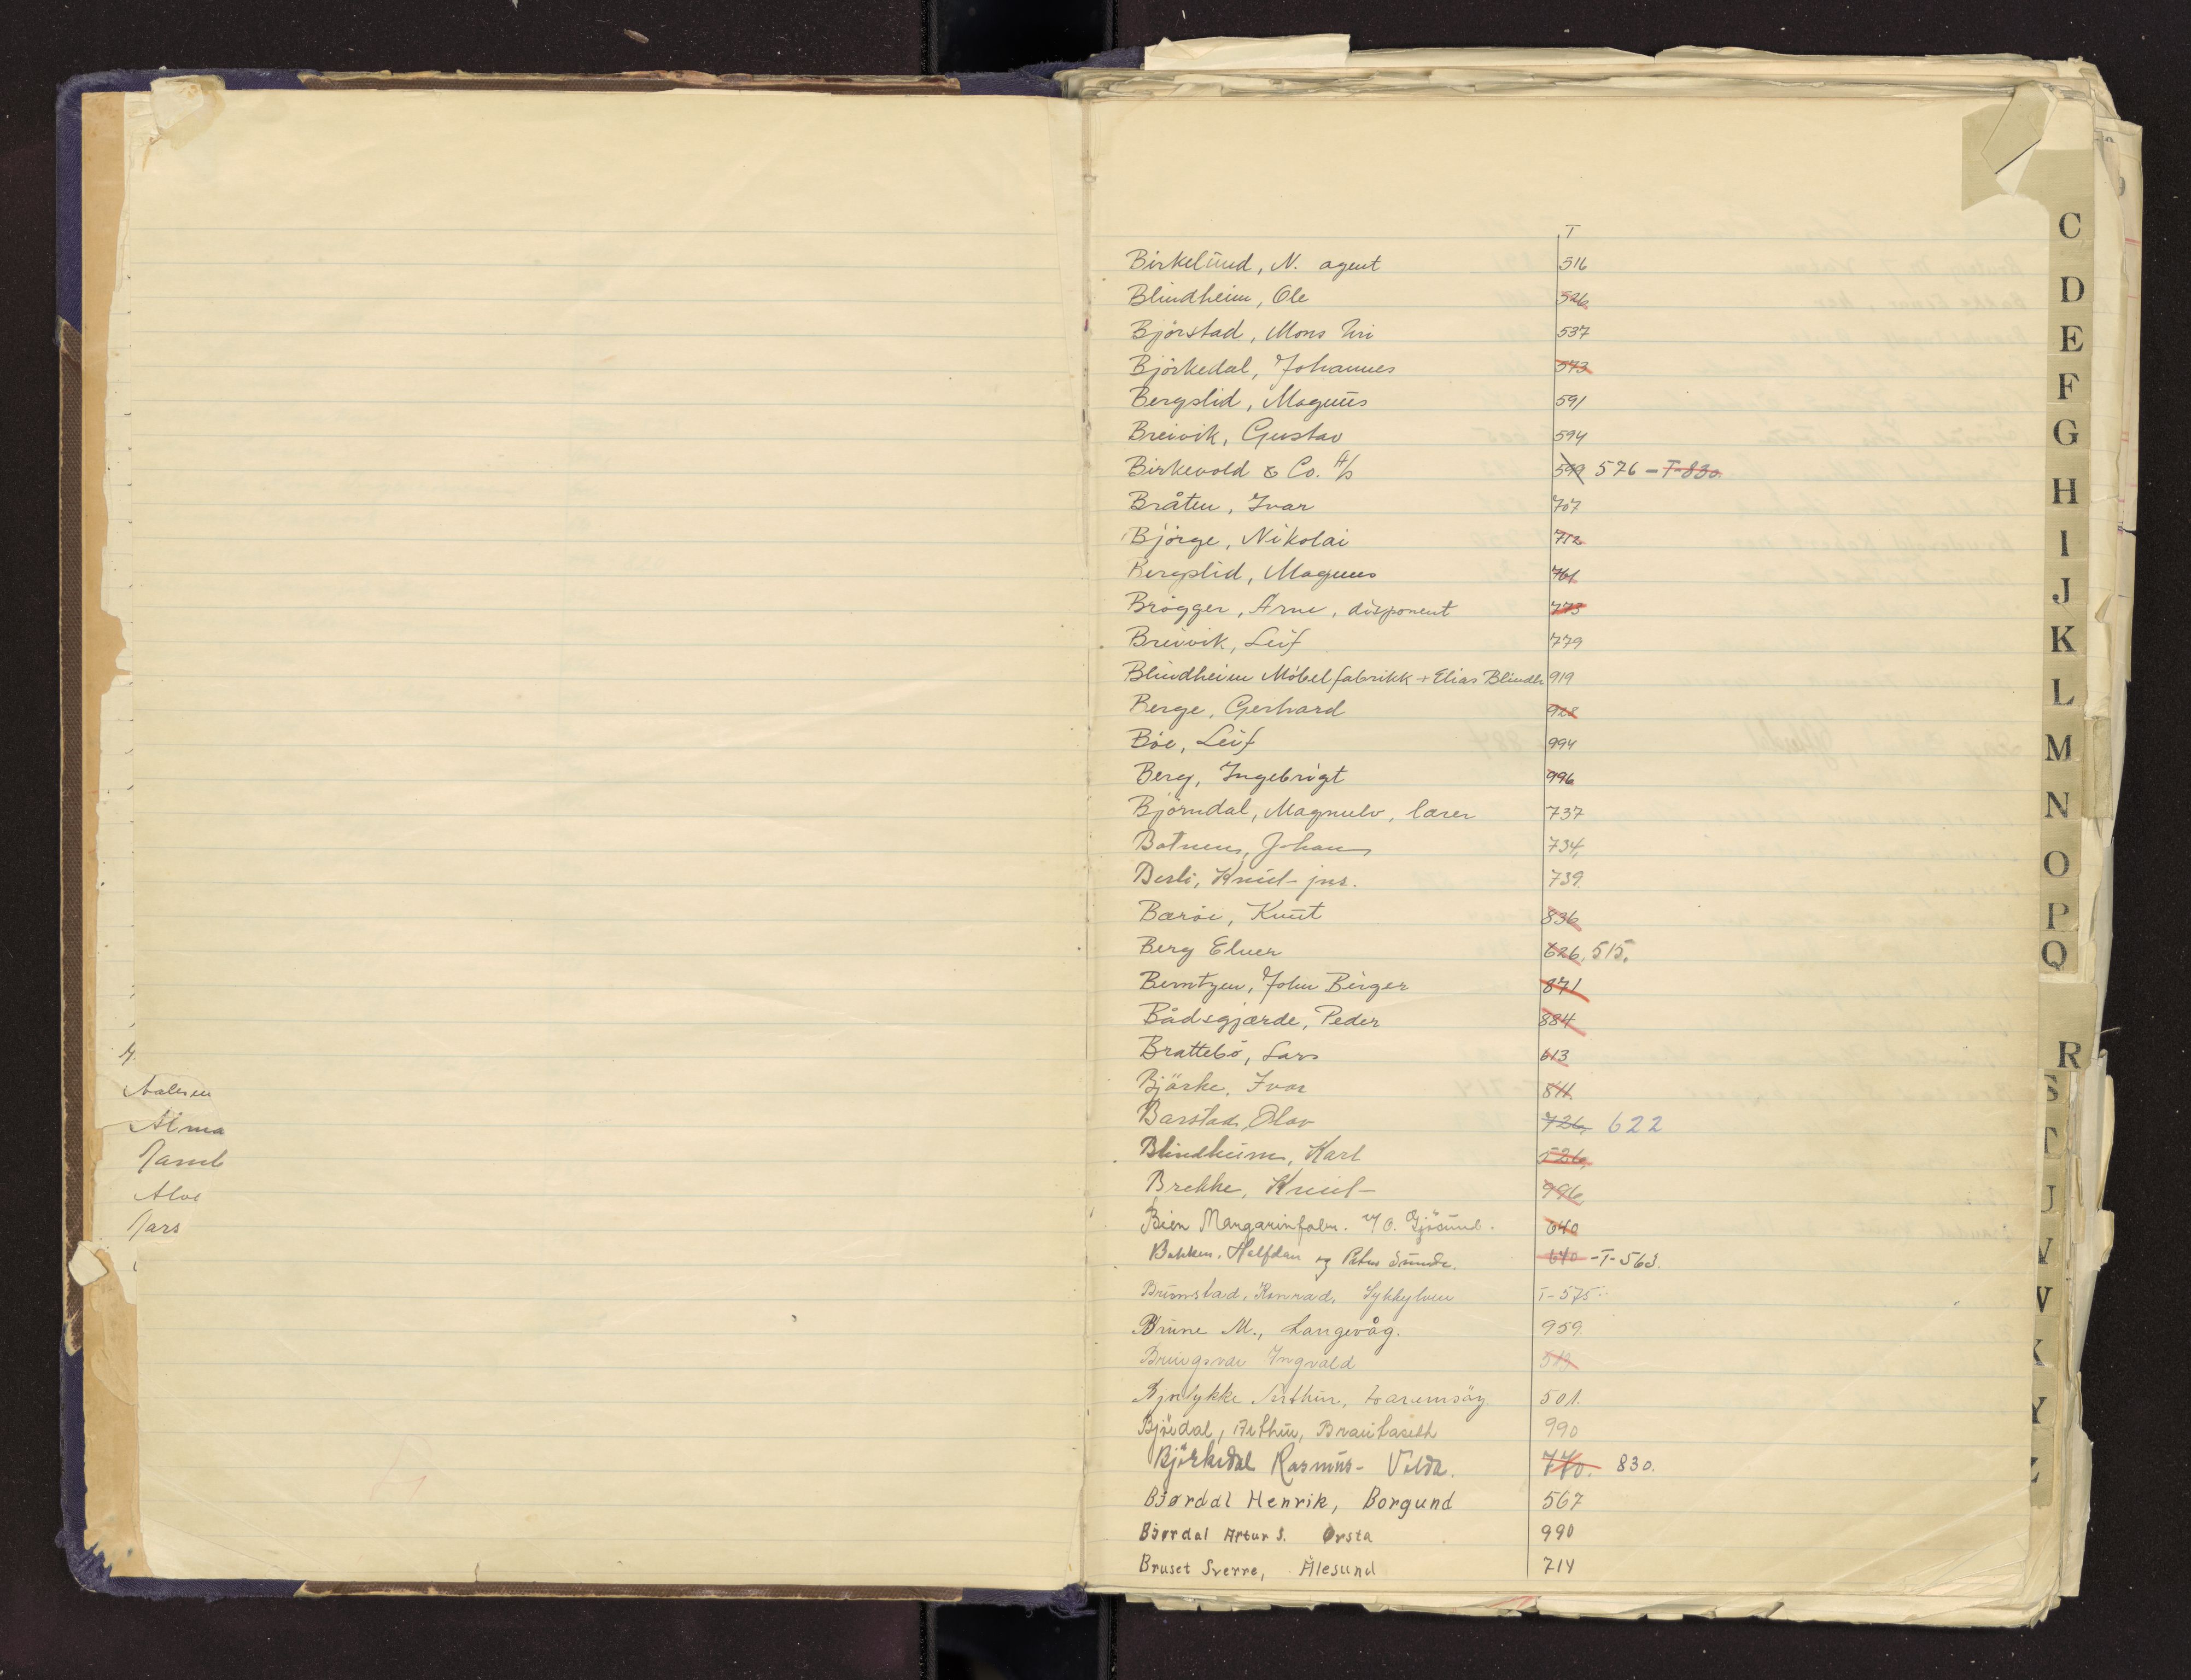 T
Birkelund, N. agent 516
Blindheim, Ole 526
Björstad, Mons 537
Björkedal, Johannes 573
Bergslid, Magnus 591
Breivik, Gustav 594
Birkevold & Co. A/S 599 576 - T-830
Bråten, Ivar 707
Björge, Nikolai 752
Bergslid, Magnus 761
Brögger, Arne, disponent 773
Breivik, Leif 779
Blindheim Möbelfabrikk + Elias Blindh 919
Berge, Gerhard 928
Böe, Leif 994
Berg, Ingebrigt 996
Björndal, Magnulv, lærer 737
Botnens, Johan 734
Berli, Knut jnr. 739
Bæröe, Knut 836
Berg Elver 626, 515.
Berntzen, John Birger 871
Bådsgjærde, Peder 884
Brattebö, Lars 613
Bjärke, Ivar 811
Barstad, Olav 726, 622
Blindheim, Karl 526
Brekke, Knut 996
Bien Margarinfabr. v/ O. Gjösund. 640
Bakken, Halfdan og Peter Sunde. 640 - T-563.
Brunstad, Konrad, Sykkylven T-575
Brune M., Langevåg. 959
Ingvald 519
Arthur, 501.
Arthur, 990
Björkedal Rasmus - Volda. 770. 830.
Bjørdal Henrik, Borgund 567
Bjørdal Artur S. Ørsta 990
Bruset Sverre, Ålesund 714
Aalesen
Alma
Alve
C
D
E
F
G
H
I
J
K
L
M
N
O
P
Q
R
S
T
U
V
Y
Z